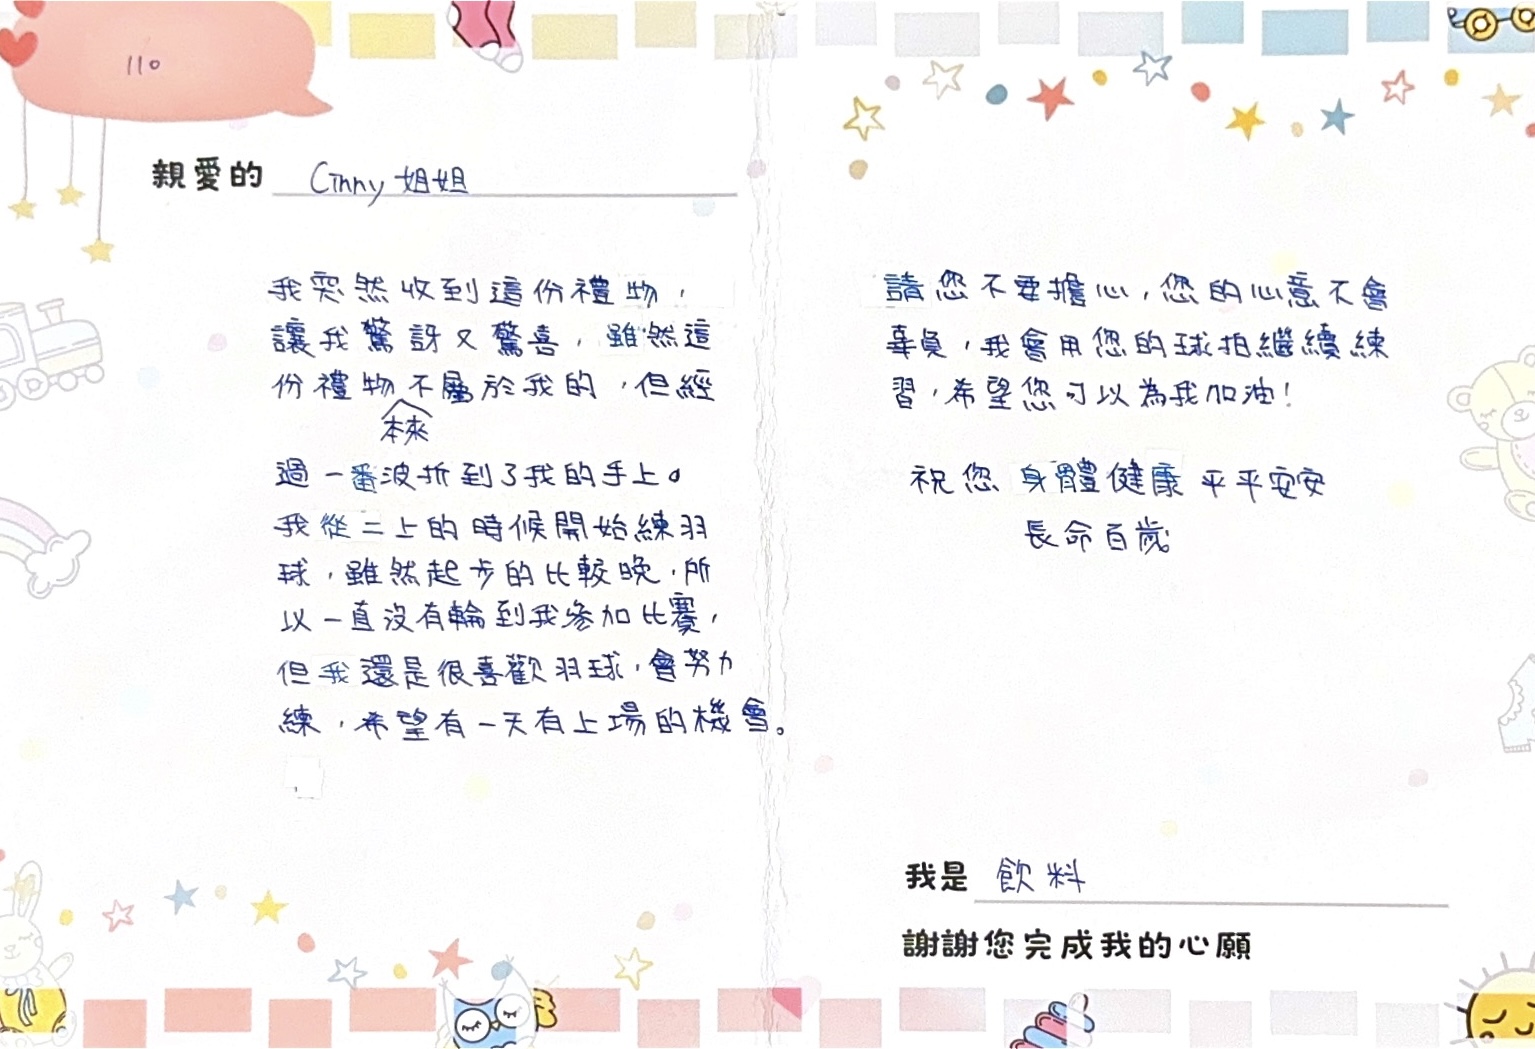 110
親愛的 Cinny 姐姐
我突然收到這份禮物，
讓我驚訝又驚喜，雖然這
份禮物本來不屬於我的，但經
過一番波折到了我的手上。
我從二上的時候開始練羽
球，雖然起步的比較晚，所
以一直沒有輪到我參加比賽，
但我還是很喜歡羽球，會努力
練，希望有一天有上場的機會。
請您不要擔心，您的心意不會
辜負，我會用您的球拍繼續練
習，希望您可以為我加油！
祝您 身體健康 平平安安
長命百歲
我是 飲料
謝謝您完成我的心願